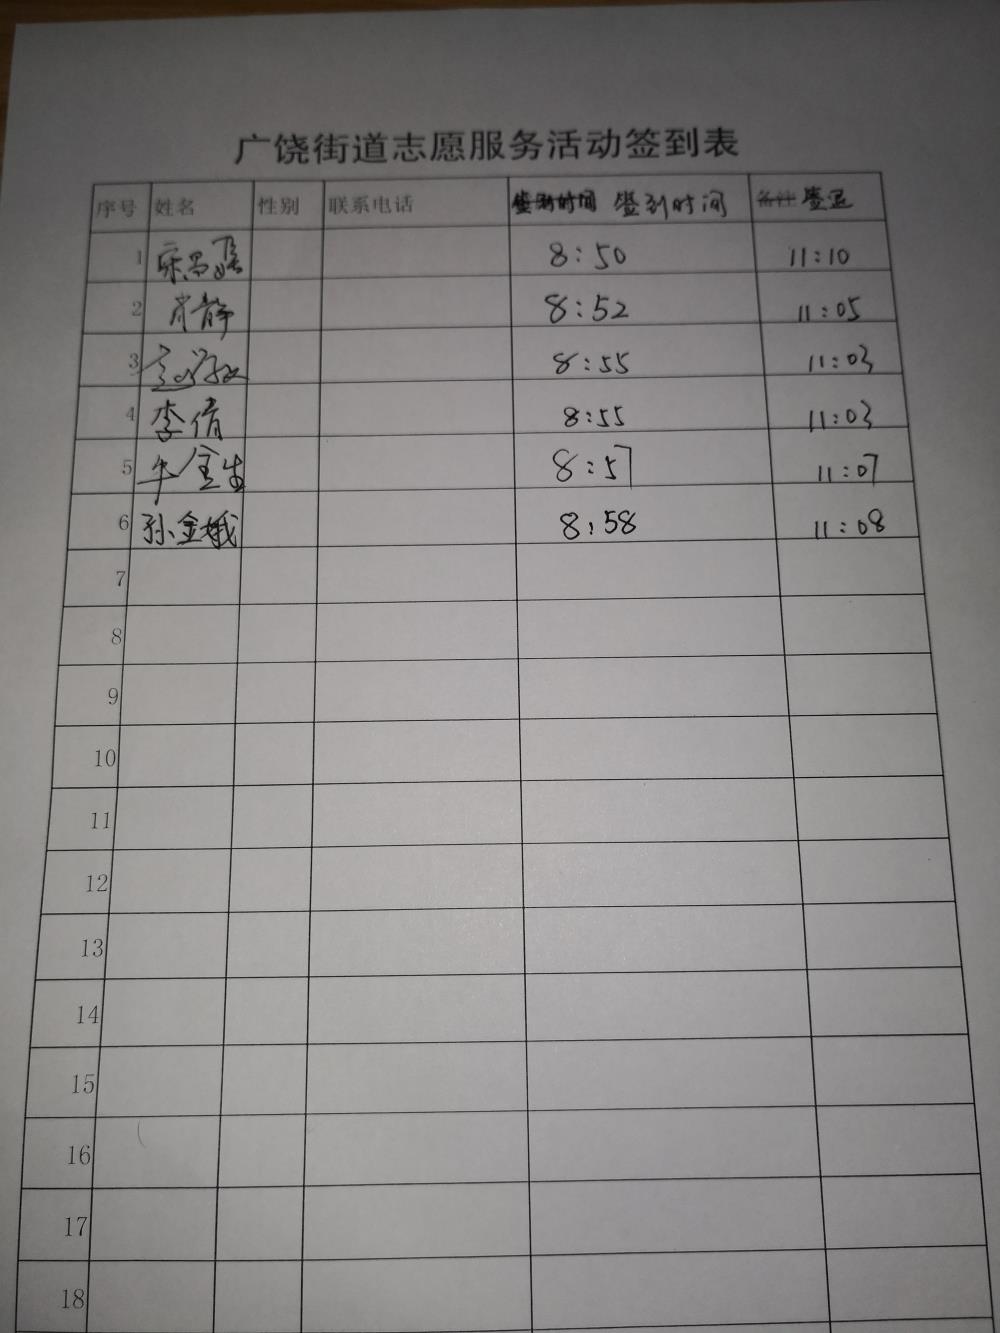 广饶街道志愿服务活动签到表
序号 姓名 性别 联系电话 签到时间 签到时间 备注 签退
1 8:50 11:10
2 肖静 8:52 11:05
3 8:55 11:03
4 李倩 8:55 11:03
5 牛金生 8:57 11:07
6 孙金娥 8:58 11:08
7
8
9
10
11
12
13
14
15
16
17
18